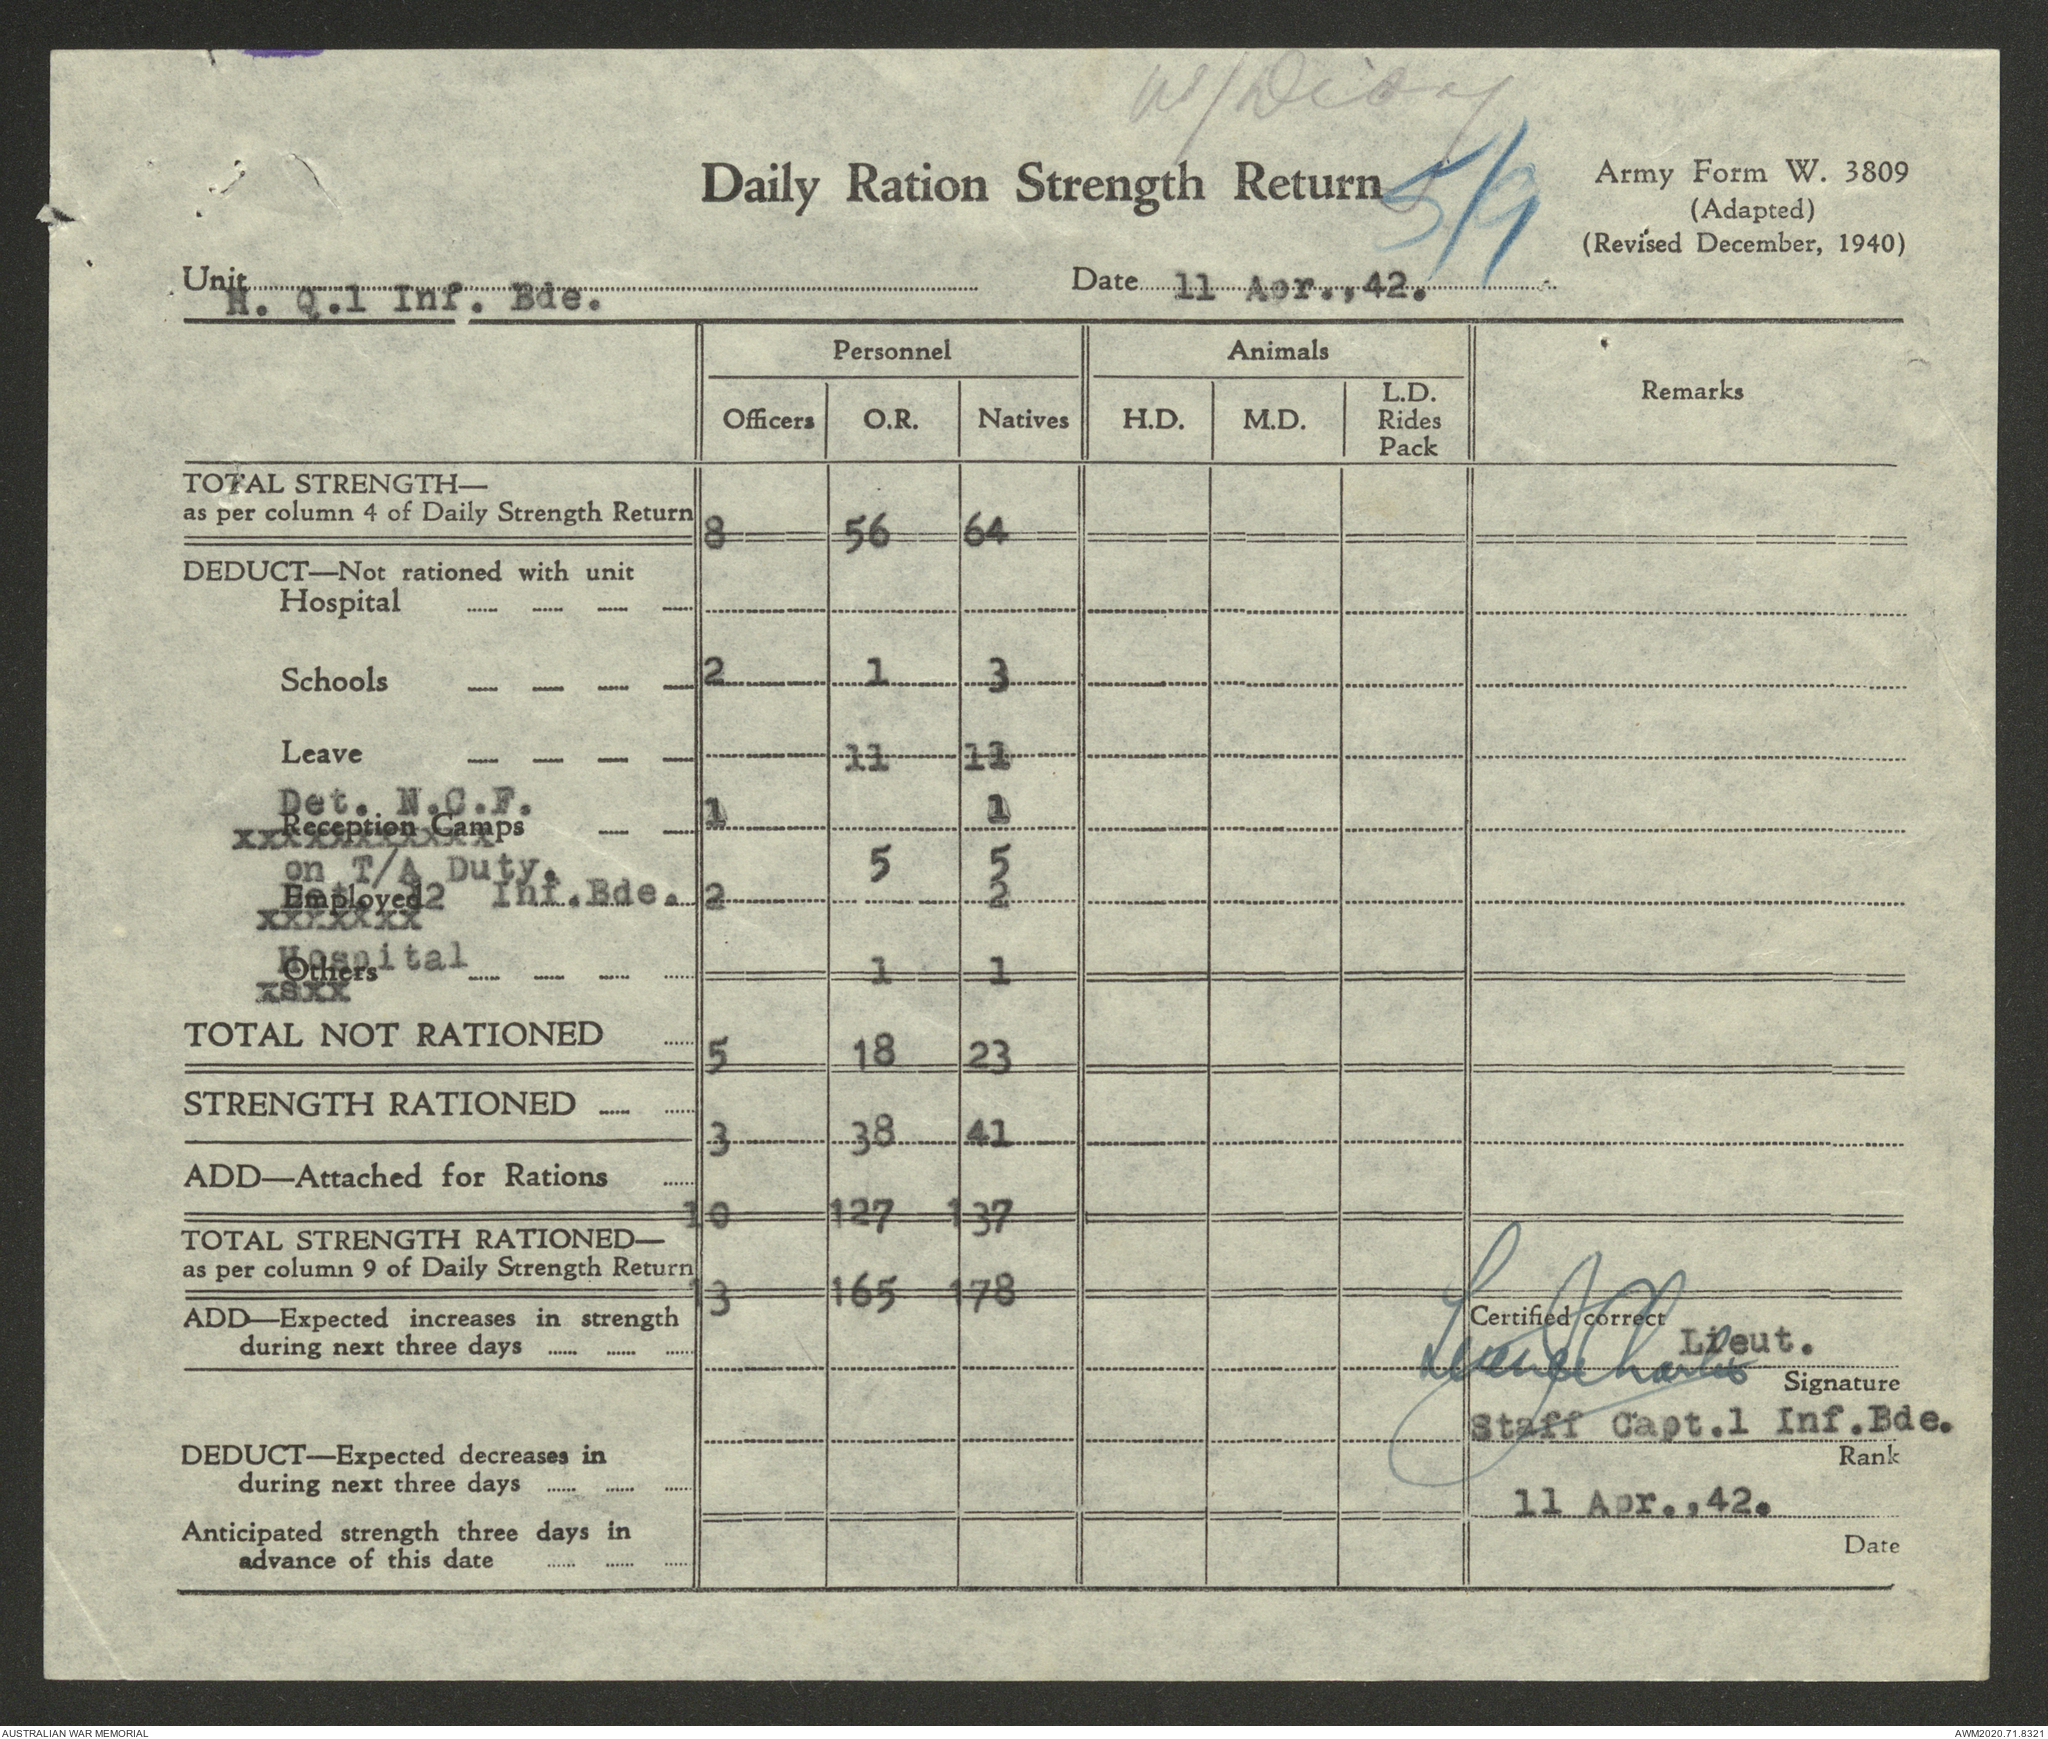 W/Diary
Daily Ration Strength Return
5/9
Army Form W. 3809
(Adapted)
(Revised December, 1940)
Unit H. Q.1 Inf. Bde.
Date 11 Apr.,42.
Personnel Animals Remarks
Officers O.R. Natives H.D. M.D. L.D. Rides Pack
TOTAL STRENGTH—
as per column 4 of Daily Strength Return 8 56 64
DEDUCT—Not rationed with unit
Hospital
Schools 2 1 3
Leave 11 11
Det. N.C.F. 1 1
Reception Camps
xxxxxxxxxxx
on T/A Duty. 5 5
Employed 2 Inf.Bde. 2 2
xxxxxxx
Hospital
Others 1 1
xsxx
TOTAL NOT RATIONED 5 18 23
STRENGTH RATIONED 3 38 41
ADD—Attached for Rations 10 127 137
TOTAL STRENGTH RATIONED—
as per column 9 of Daily Strength Return 13 165 178
ADD—Expected increases in strength
during next three days
Certified correct
Lieut.
Signature
Staff Capt.1 Inf.Bde.
Rank
DEDUCT—Expected decreases in
during next three days
11 Apr.,42.
Date
Anticipated strength three days in
advance of this date
AUSTRALIAN WAR MEMORIAL
AWM2020.71.8321